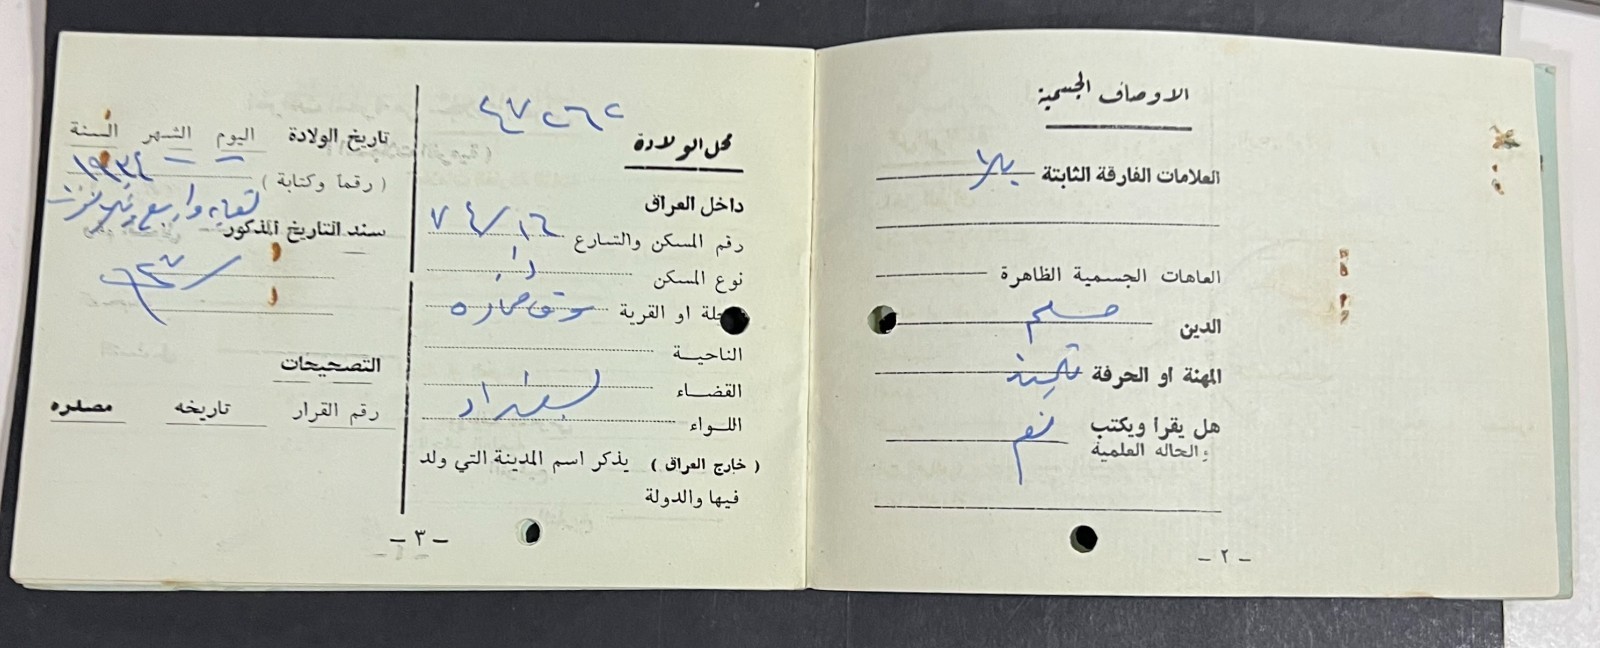 الاوصاف الجسمية
العلامات الفارقة الثابتة
العاهات الجسمية الظاهرة
الدين مسلم
المهنة او الحرفة تلميذ
هل يقرا ويكتب نعم
والحاله العلمية
- ٢ -
محل الولادة
داخل العراق
رقم المسكن والشارع ١٦/٧٤
نوع المسكن دار
محلة او القرية
الناحيــة
القضــاء بغداد
اللــواء
( خارج العراق ) يذكر اسم المدينة التي ولد
فيها والدولة
- ٣ -
تاريخ الولادة اليوم الشهر السنة
( رقماً وكتابة ) ١٩٣٤
سند التاريخ المذكور
التصحيحات
رقم القرار تاريخه مصدره